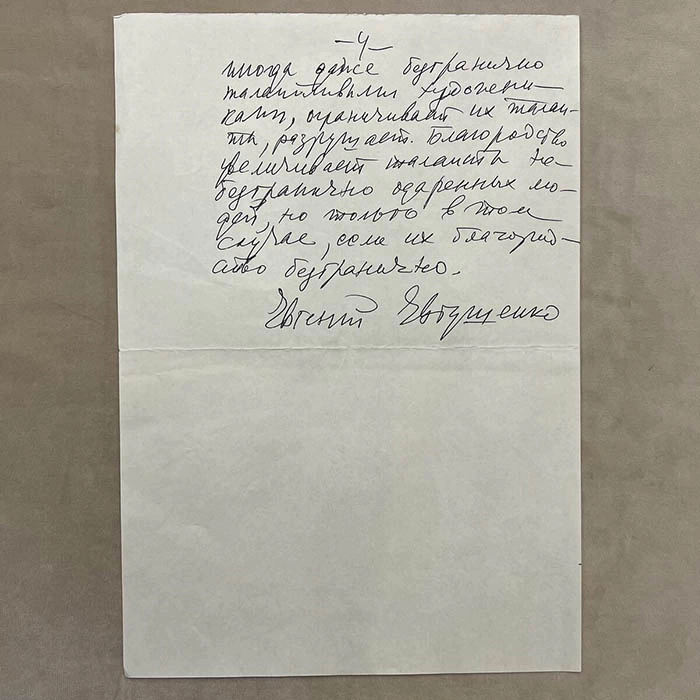 -4-
иногда даже безгранично
талантливыми художни-
ками, ограничивает их талан-
ты, разрушает. Благородство
увеличивает таланты не
безгранично одаренных лю-
дей, но только в том
случае, если их благород-
ство безгранично.
Евгений Евтушенко